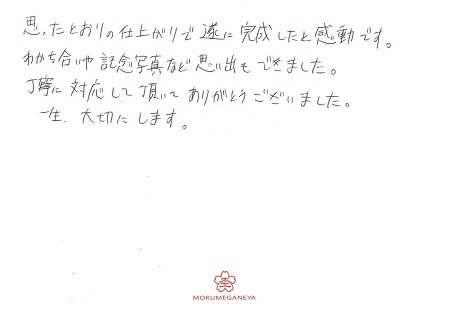 思ったとおりの仕上がりで遂に完成したと感動です。
わかち合いや記念写真など思い出もできました。
丁寧に対応して頂いてありがとうございました。
一生、大切にします。
MOKUMEGANEYA